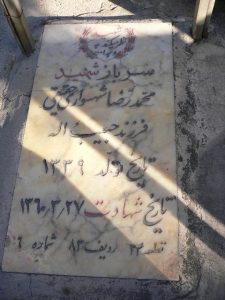 شهید
سرباز شهید
محمدرضا شهسواری
فرزند حبیب اله
تاریخ تولد ۱۳۳۹
تاریخ شهادت ۱۳۶۰/۳/۲۷
قطعه ۲۴ ردیف ۸۳ شماره ۹